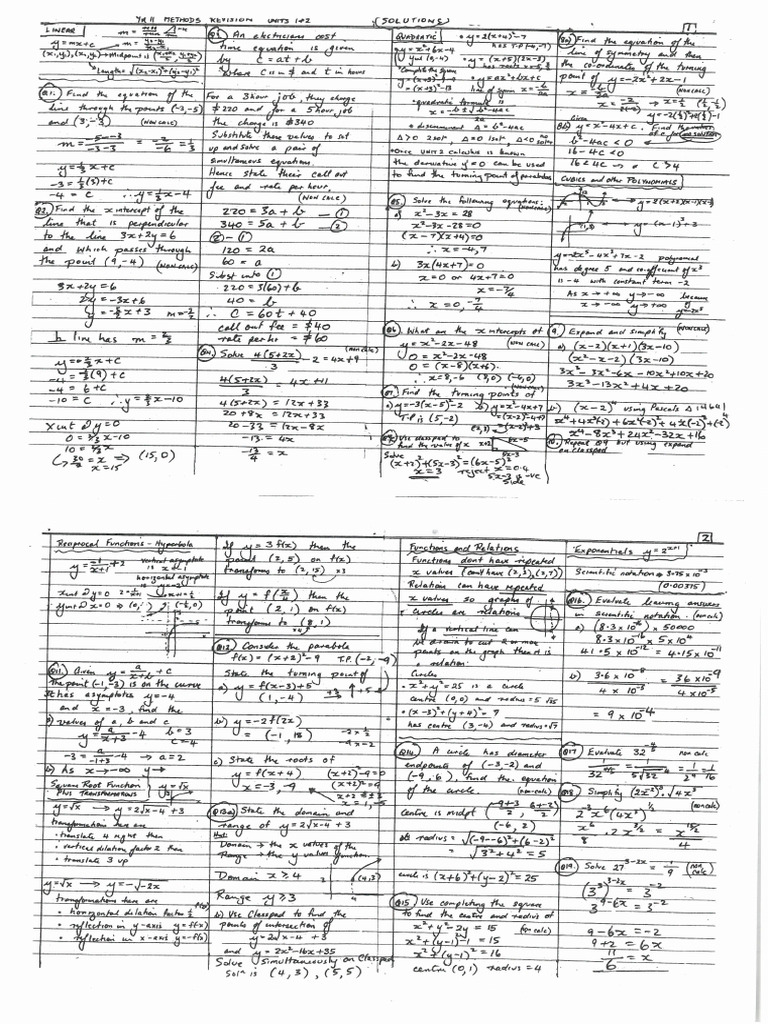 YR 11 METHODS REVISION UNITS 1+2 (SOLUTIONS)
1
LINEAR
y=mx+c
Q1. Find the equation of the
line through the points (-3,-5)
and (3,-3) (NON CALC)
m = -5--3 / -3-3 = -2/-6 = 1/3
y = 1/3 x + c
-3 = 1/3(3) + c
-4 = c ∴ y = 1/3 x - 4
Q2. Find the x intercept of the
line that is perpendicular
to the line 3x+2y=6
and which passes through
the point (9,-4) (NON CALC)
3x+2y=6
2y = -3x+6
y = -3/2 x + 3
⊥ line has m = 2/3
y = 2/3 x + c
-4 = 2/3(9) + c
-4 = 6 + c
-10 = c ∴ y = 2/3 x - 10
x int y=0
0 = 2/3 x - 10
10 = 2/3 x
30/2 = x ⇒ (15,0)
x=15
Q3 An electricians cost
time equation is given
by C = at + b
where C is in $ and t in hours
For a 3 hour job, they charge
$220 and for a 5 hour job
the charge is $340
Substitute these values to set
up and solve a pair of
simultaneous equations.
Hence state their call out
fee and rate per hour.
(NON CALC)
220 = 3a + b —①
340 = 5a + b —②
②-①
120 = 2a
60 = a
Subst into ①
220 = 3(60) + b
40 = b
∴ C = 60t + 40
call out fee = $40
rate per hr = $60
Q4 Solve 4(5+2x)/3 - 2 = 4x+9 (NON CALC)
4(5+2x)/3 = 4x+11
4(5+2x) = 12x+33
20+8x = 12x+33
20-33 = 12x-8x
-13 = 4x
-13/4 = x
QUADRATIC
• y=2(x+4)²-7
has T.P (-4,-7)
y = x²+6x-4
yint (0,-4)
• y=(x+5)(2x-3)
Complete the square
• y=ax²+bx+c
= (x+3)²-13
• quadratic formula is
x = -b±√b²-4ac / 2a
• discriminant Δ = b²-4ac
Δ>0 2 sol Δ=0 1 sol Δ<0 no sol
• Once Unit 2 calculus is known
the derivative y'=0 can be used
to find the turning point of parabolas
Q5. Solve the following equations:
a) x²-3x = 28
x²-3x-28=0
(x-7)(x+4)=0
∴ x=-4,7
b) 3x(4x+7)=0
x=0 or 4x+7=0
x=-7/4
∴ x = 0, -7/4
Q6 What are the x intercepts of
y = x²-2x-48 (NON CALC)
0 = x²-2x-48
0 = (x-8)(x+6)
∴ x=8,-6 (8,0) (-6,0)
Q7. Find the turning points of
a) y=-3(x-5)²-2 b) y=x²-4x+7
T.P is (5,-2) = (x-2)²-4+7
(2,3) = (x-2)²+3
Use classpad to
find the value of x
Solve
(x+2)²+(5x-3)² = (6x-5)²
x = 3 reject x=0.4
5x-3 is -ve
side
Find the equation of the
line of symmetry and then
the co-ordinates of the turning
point of y=-2x²+2x-1
(NON CALC)
x = -b/2a
x = -2/2(-2) ⇒ x=1/2
b²-4ac < 0
16-4c < 0
16 < 4c ∴ c > 4
CUBICS and other POLYNOMIALS
y = (x-1)³+3
polynomial
has degree 5 and coefficient of x²
is -4 with constant term -2
As x→+∞ y→-∞
x→-∞ y→+∞
because
9. Expand and simplify (NON CALC)
a) (x-2)(x+1)(3x-10)
(x²-x-2)(3x-10)
3x³-3x²-6x-10x²+10x+20
3x³-13x²+4x+20
b) (x-2)⁴ using Pascals Δ 14641
x⁴+4x³(-2)+6x²(-2)²+4x(-2)³+(-2)⁴
x⁴-8x³+24x²-32x+16
10. Repeat Q9 but using expand
on classpad
2
Reciprocal Functions - Hyperbola
y = -1/x+1 + 2
vertical asymptote
is x=-1
horizontal asymptote
is y=2
Q11. Given y = a/x+b + c
The point (-1,-3) is on the curve
It has asymptotes y=-4
and x=-3, find the
a) values of a, b and c
y = a/x+3 - 4 b=3
c=-4
-3 = a/-1+3 - 4 → a=2
b) As x→-∞ y→
Square Root Function y=√x
PLUS TRANSFORMATIONS
y=√x → y=2√x-4 + 3
transformations here are
• translate 4 right then
• vertical dilation factor 2 then
• translate 3 up
y=√x → y=-√-2x
transformations here are
• horizontal dilation factor 1/2
• reflection in y-axis y=f(-x)
• reflection in x-axis y=-f(x)
If y = 3f(x) then the
point (2,5) on f(x)
transforms to (2,15) x3
If y = f(x/4) then the
point (2,1) on f(x)
transforms to (8,1)
x4
Q12 Consider the parabola
f(x) = (x+2)²-9 T.P. (-2,-9)
State the turning point of
a) y = f(x-3)+5
(1,-4)
b) y = -2f(2x)
= (-1,18)
c) State the roots of
y = f(x+4) (x+2)²-9=0
x = -3,-9 (x+2)²=9
x+2=±3
x=1,-5
Q13a) State the domain and
range of y=2√x-4 + 3
Domain → the x values of the
Range → the y values function.
Domain x ≥ 4
(4,3)
Range y ≥ 3
b) Use Classpad to find the
points of intersection of
y = 2√x-4 + 3
and y = 2x²-16x+35
Solve simultaneously on Classpad
Solⁿ is (4,3), (5,5)
Functions and Relations
Functions dont have repeated
x values (cant have (2,3),(2,7))
Relations can have repeated
x values so graphs of
circles are relations
If a vertical line can
be drawn to cut 2 or more
points on the graph then it is
a relation.
Circles
• x²+y²=25 is a circle
centre (0,0) and radius=5 √25
• (x-3)²+(y+4)²=7
has centre (3,-4) and radius=√7
Q14. A circle has diameter
endpoints of (-3,-2) and
(-9,6). Find the equation
of the circle. (non-calc)
centre is midpt (-9+-3/2, 6+-2/2)
(-6,2)
radius = √(-9--6)²+(6-2)²
= √3²+4² = 5
circle is (x+6)²+(y-2)²=25
Q15 Use completing the square
to find the centre and radius of
x²+y²-2y = 15 (non calc)
x²+(y-1)²-1 = 15
x²+(y-1)² = 16
centre (0,1) radius=4
Exponentials y=2ˣ⁺¹
Scientific notation → 3.75×10⁻³
(0.00375)
Q16. Evaluate leaving answers
in scientific notation. (non calc)
a) (8.3×10⁻¹⁶)×50000
8.3×10⁻¹⁶×5×10⁴
41.5×10⁻¹² = 4.15×10⁻¹¹
b) 3.6×10⁻⁸ / 4×10⁻⁵ = 36×10⁻⁹ / 4×10⁻⁵
= 9×10⁻⁴
Q17 Evaluate 32^-4/5 non calc
1/32^4/5 = 1/(⁵√32)⁴ = 1/2⁴ = 1/16
Q18 Simplify (non calc)
Q19. Solve 27³⁻²ˣ = 1/9 (non calc)
(3³)³⁻²ˣ = 3⁻²
3⁹⁻⁶ˣ = 3⁻²
9-6x = -2
9+2 = 6x
11/6 = x